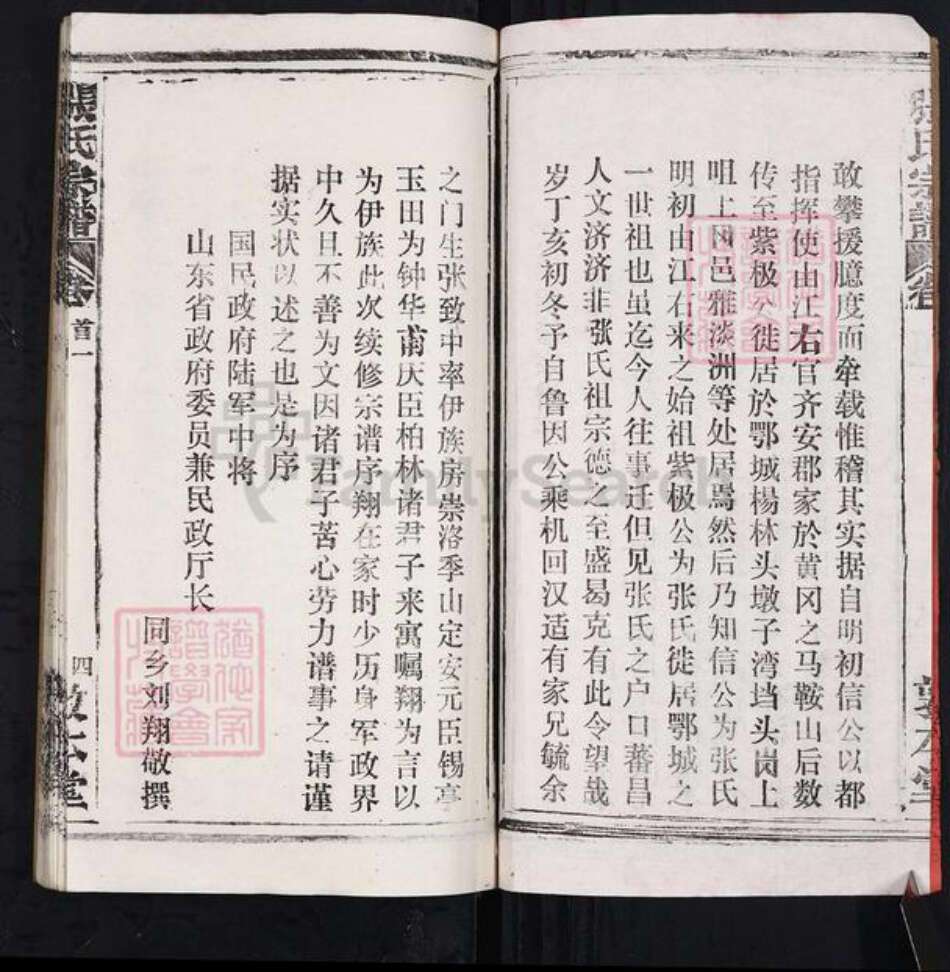 敢攀援臆度而牵载惟稽其实据自明初信公以都
指挥使由江右官齐安郡家於黄冈之马鞍山后数
传至紫极公徙居於鄂城楊林头墩子湾垱头岗上
咀上风邑雅淡洲等处居焉然后乃知信公为张氏
明初由江右来之始祖紫极公为张氏徙居鄂城之
一世祖也虽迄今人往事迁但见张氏之户口蕃昌
人文济济非张氏祖宗德之至盛曷克有此令望哉
岁丁亥初冬予自鲁因公乘机回汉适有家兄毓余
之门生张致中率伊族房崇洛季山定安元臣锡亭
玉田为钟华甫庆臣柏林诸君子来寓嘱翔为言以
为伊族此次续修宗谱序翔在家时少历身军政界
中久且不善为文因诸君子苦心劳力谱事之请谨
据实状以述之也是为序
国民政府陆军中将
山东省政府委员兼民政厅长
同乡刘翔敬撰
張氏宗譜
卷首一
四
堂
張氏宗譜
卷
堂
FamilySearch